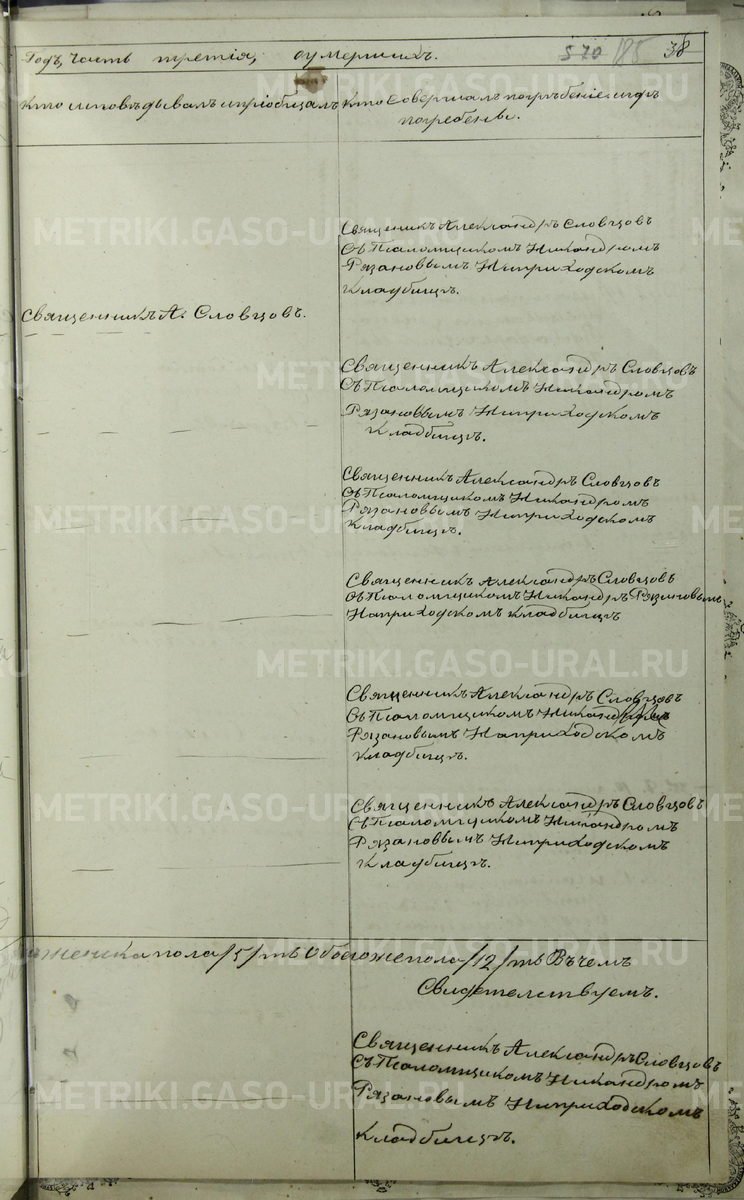 Годъ, часть третія, о умершихъ. 570 185 38
Кто исповѣдывалъ и пріобщалъ
Кто совершалъ погрѣбеніе и гдѣ
погребены.
Священникъ Александръ Словцовъ
Съ Псаломщикомъ Никандромъ
Рязановымъ На приходскомъ
Кладбищѣ.
Священникъ А. Словцовъ.
Священникъ Александръ Словцовъ
Съ Псаломщикомъ Никандромъ
Рязановымъ На приходскомъ
Кладбищѣ.
Священникъ Александръ Словцовъ
Съ Псаломщикомъ Никандромъ
Рязановымъ На приходскомъ
Кладбищѣ.
Священникъ Александръ Словцовъ
Съ Псаломщикомъ Никандръ Рязановымъ
На приходскомъ кладбищѣ
Священникъ Александръ Словцовъ
Съ Псаломщикомъ
Рязановымъ На приходскомъ
кладбищѣ.
Священникъ Александръ Словцовъ
Съ Псаломщикомъ Никандромъ
Рязановымъ На приходскомъ
Кладбищѣ.
женска пола /5/ть Обоего же пола /12/ть Въ чемъ
Свидетельствуемъ.
Священникъ Александръ Словцовъ
Съ Псаломщикомъ Никандромъ
Рязановымъ На приходскомъ
Кладбищѣ.
METRIKI.GASO-URAL.RU